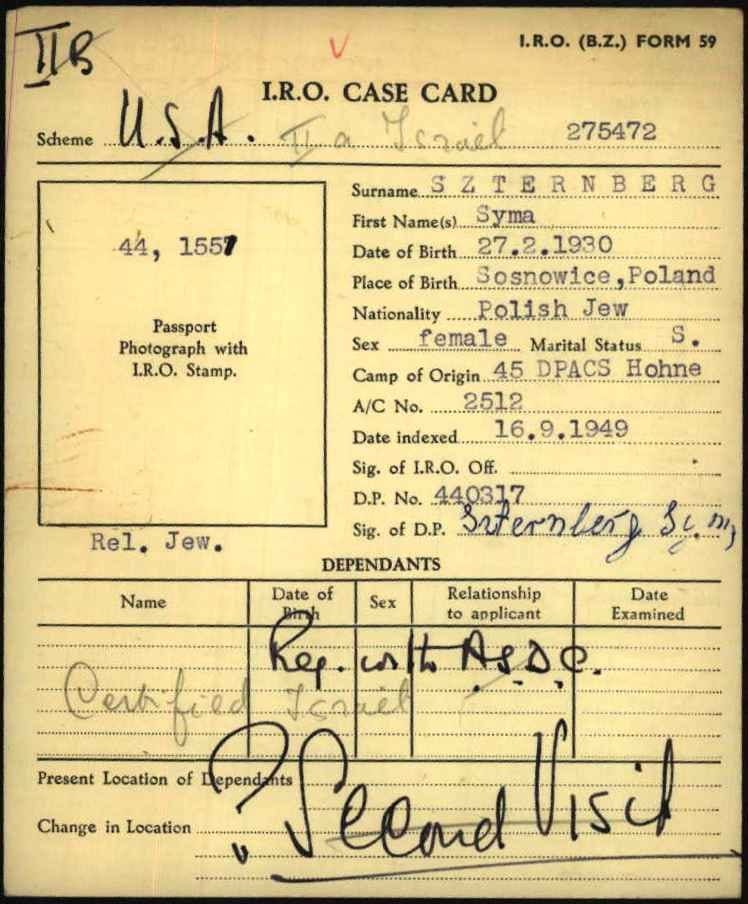 II B
√
I.R.O. (B.Z.) FORM 59
I.R.O. CASE CARD
Scheme U.S.A. II a Israel 275472
44, 1557
Passport
Photograph with
I.R.O. Stamp.
Rel. Jew.
Surname SZTERNBERG
First Name(s) Syma
Date of Birth 27.2.1930
Place of Birth Sosnowice,Poland
Nationality Polish Jew
Sex female Marital Status S.
Camp of Origin 45 DPACS Hohne
A/C No. 2512
Date indexed 16.9.1949
Sig. of I.R.O. Off.
D.P. No. 440317
Sig. of D.P. Szternberg Sym
DEPENDANTS
Name Date of Birth Sex Relationship to applicant Date Examined
Reg. with
Certified Israel
Present Location of Dependants
? Second Visit
Change in Location